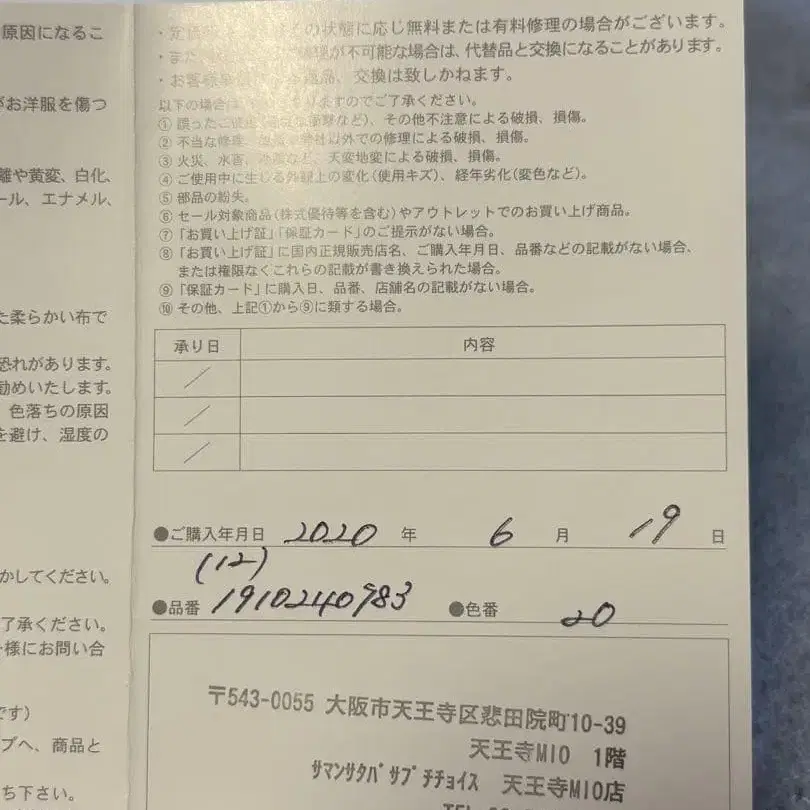 原因になるこ
がお洋服を傷つ
離や黄変、白化、
ール、エナメル、
た柔らかい布で
恐れがあります。
勧めいたします。
色落ちの原因
を避け、湿度の
かしてください。
了承ください。
様にお問い合
です)
プへ、商品と
ち下さい。
の状態に応じ無料または有料修理の場合がございます。
・また 不可能な場合は、代替品と交換になることがあります。
・お客様 品、交換は致しかねます。
以下の場合は りますのでご了承ください。
① 誤ったご使用 衝撃など)、その他不注意による破損、損傷。
② 不当な修理、 以外での修理による破損、損傷。
③ 火災、水害、 など、天変地変による破損、損傷。
④ ご使用中に生じる外観上の変化(使用キズ)、経年劣化(変色など)。
⑤ 部品の紛失。
⑥ セール対象商品(株式優待等を含む)やアウトレットでのお買い上げ商品。
⑦ 「お買い上げ証」「保証カード」のご提示がない場合。
⑧ 「お買い上げ証」に国内正規販売店名、ご購入年月日、品番などの記載がない場合、
または権限なくこれらの記載が書き換えられた場合。
⑨ 「保証カード」に購入日、品番、店舗名の記載がない場合。
⑩ その他、上記①から⑨に類する場合。
承り日 内容
／
／
／
●ご購入年月日 2020 年 6 月 19 日
(12)
●品番 1910240983 ●色番 20
〒543-0055 大阪市天王寺区悲田院町10-39
天王寺MIO 1階
サマンサタバサプチチョイス 天王寺MIO店